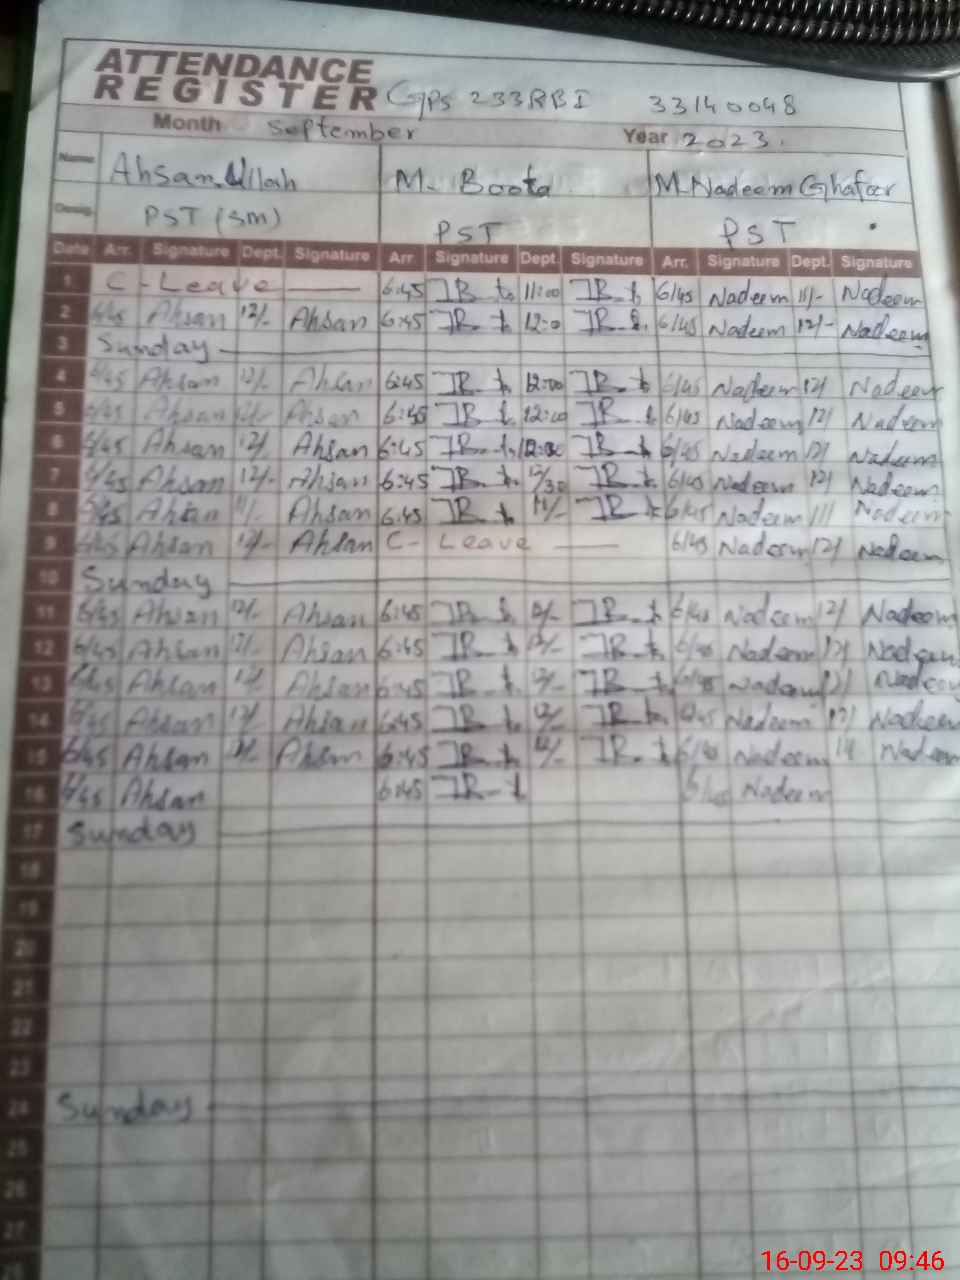 ATTENDANCE
REGISTER GPS 233RBI 33140048
Month September Year 2023.
Name Ahsan Ullah M. Boota M. Nadeem Ghafoor
Desig. PST (SM) PST PST
Date Arr. Signature Dept. Signature Arr. Signature Dept. Signature Arr. Signature Dept. Signature
1 C-Leave 6:45 11:00 6/45 Nadeem 11/- Nadeem
2 6/45 Ahsan 12/- Ahsan 6:45 12:0 6/45 Nadeem 12/- Nadeem
3 Sunday
4 6/45 Ahsan 12/- Ahsan 6:45 12:00 6/45 Nadeem 12/ Nadeem
5 6/45 Ahsan Ahsan 6:45 12:00 6/45 Nadeem 12/ Nadeem
6 6/45 Ahsan 12/ Ahsan 6:45 12:00 6/45 Nadeem 12/ Nadeem
7 6/45 Ahsan 12/- Ahsan 6:45 12/30 6/45 Nadeem 12/ Nadeem
8 6/45 Ahsan 11/- Ahsan 6:45 11/- 6/45 Nadeem 11/ Nadeem
9 6/45 Ahsan 12/- Ahsan C- Leave 6/45 Nadeem 12/ Nadeem
10 Sunday
11 6/45 Ahsan 12/- Ahsan 6:45 12/- 6/45 Nadeem 12/ Nadeem
12 6/45 Ahsan 12/- Ahsan 6:45 12/- 6/45 Nadeem 12/ Nadeem
13 6/45 Ahsan 12/ Ahsan 6:45 12/- 6/45 Nadeem 12/ Nadeem
14 6/45 Ahsan 12/- Ahsan 6:45 12/- 6/45 Nadeem 12/ Nadeem
15 6/45 Ahsan Ahsan 6:45 6/45 Nadeem Nadeem
16 6/45 Ahsan 6:45 6/45 Nadeem
17 Sunday
18
19
20
21
22
23
24 Sunday
25
26
27
28
16-09-23 09:46